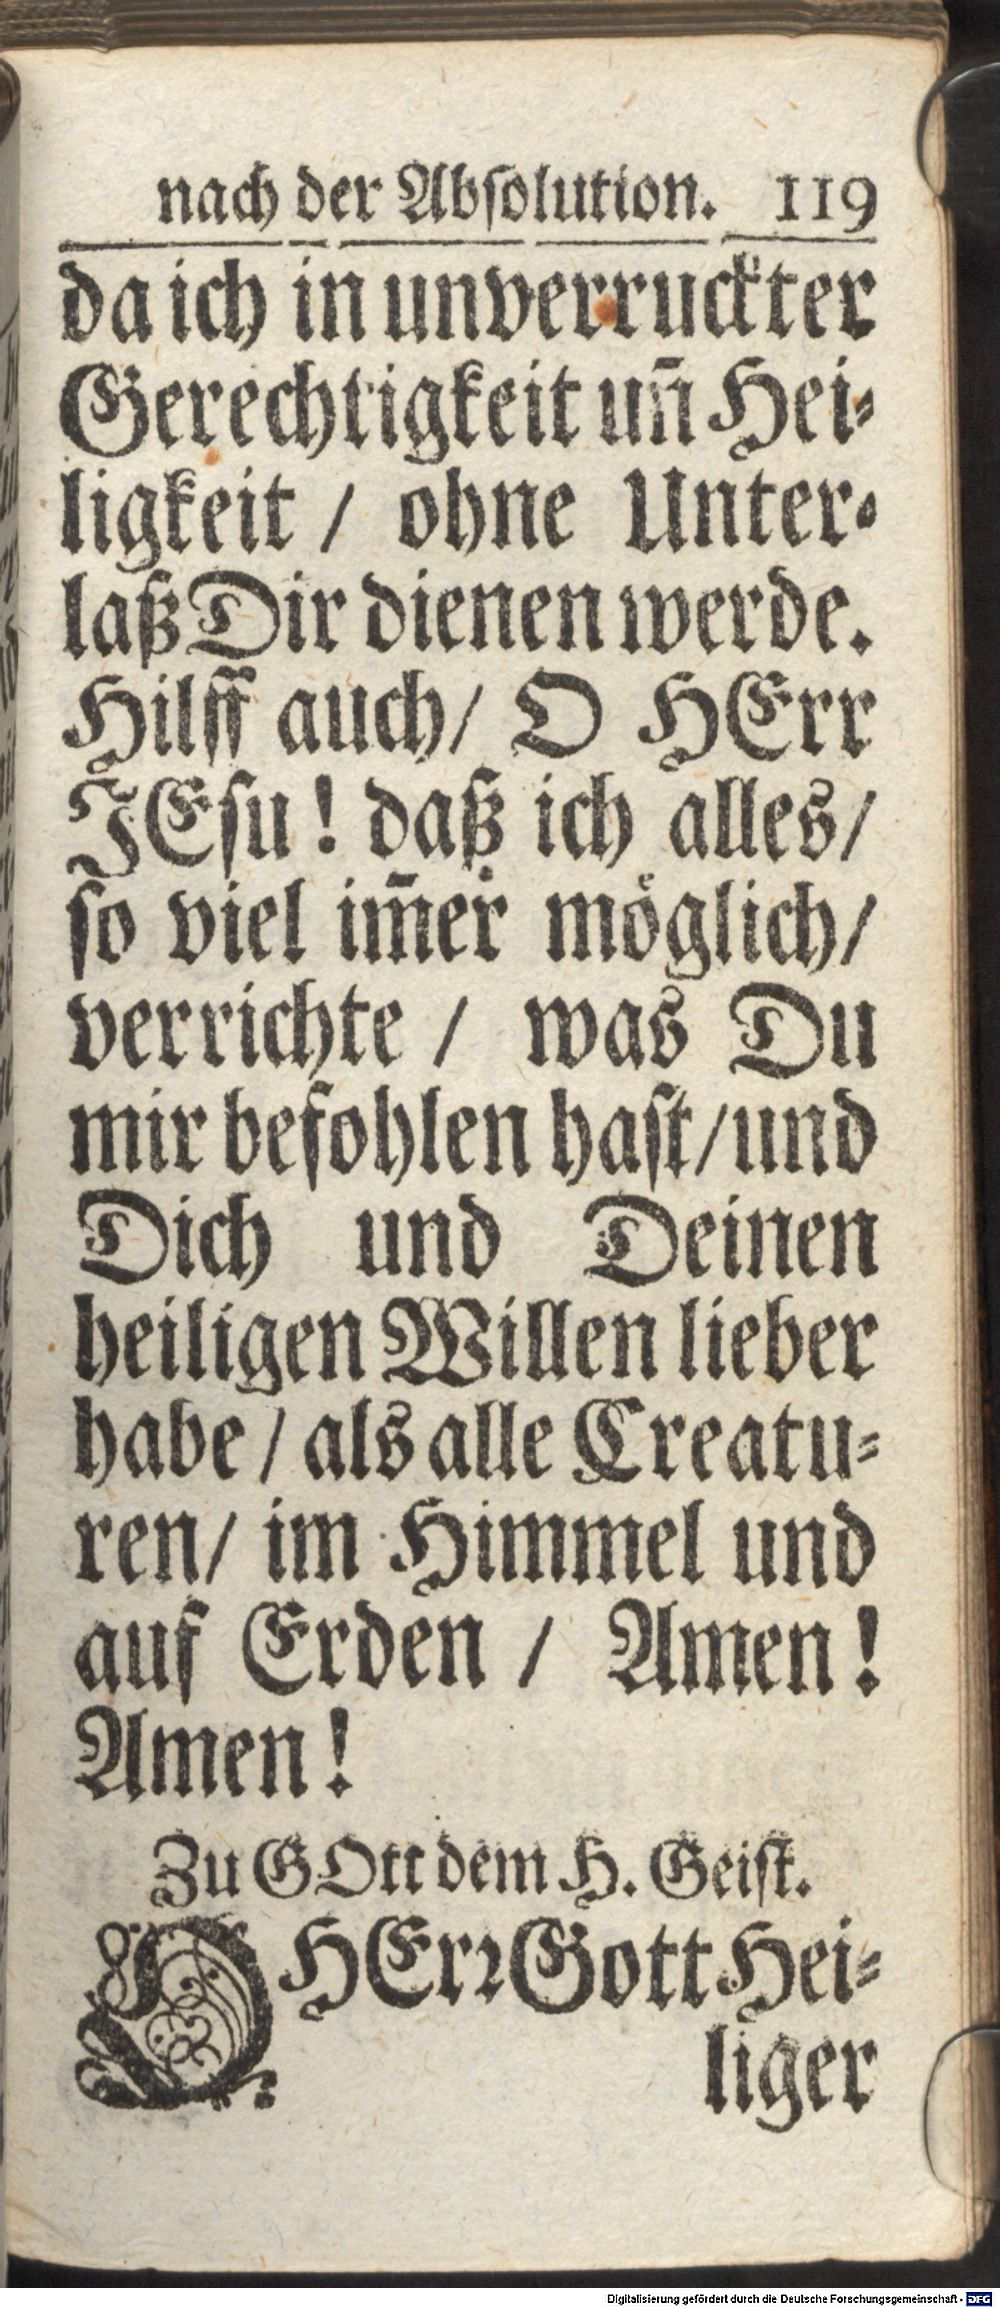 nach der Abſolution. 119
da ich in unverruckter
Gerechtigkeit uñ Hei-
ligkeit / ohne Unter-
laß Dir dienen werde.
Hilff auch/ O HErr
JEſu! daß ich alles/
ſo viel im̃er möglich/
verrichte / was Du
mir befohlen haſt/und
Dich und Deinen
heiligen Willen lieber
habe / als alle Creatu-
ren/ im Himmel und
auf Erden / Amen!
Amen!
Zu GOtt dem H. Geiſt.
O HErꝛ Gott Hei-
liger
Digitalisierung gefördert durch die Deutsche Forschungsgemeinschaft - DFG